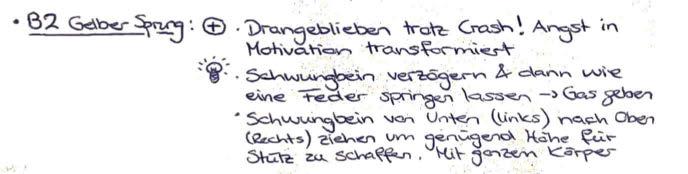 • B2 Gelber Sprung: ⊕ • Drangeblieben trotz Crash! Angst in
Motivation transformiert
• Schwungbein verzögern & dann wie
eine Feder springen lassen → Gas geben
• Schwungbein von Unten (links) nach Oben
(Rechts) ziehen um genügend Höhe für
Stütz zu schaffen. Mit ganzen Körper